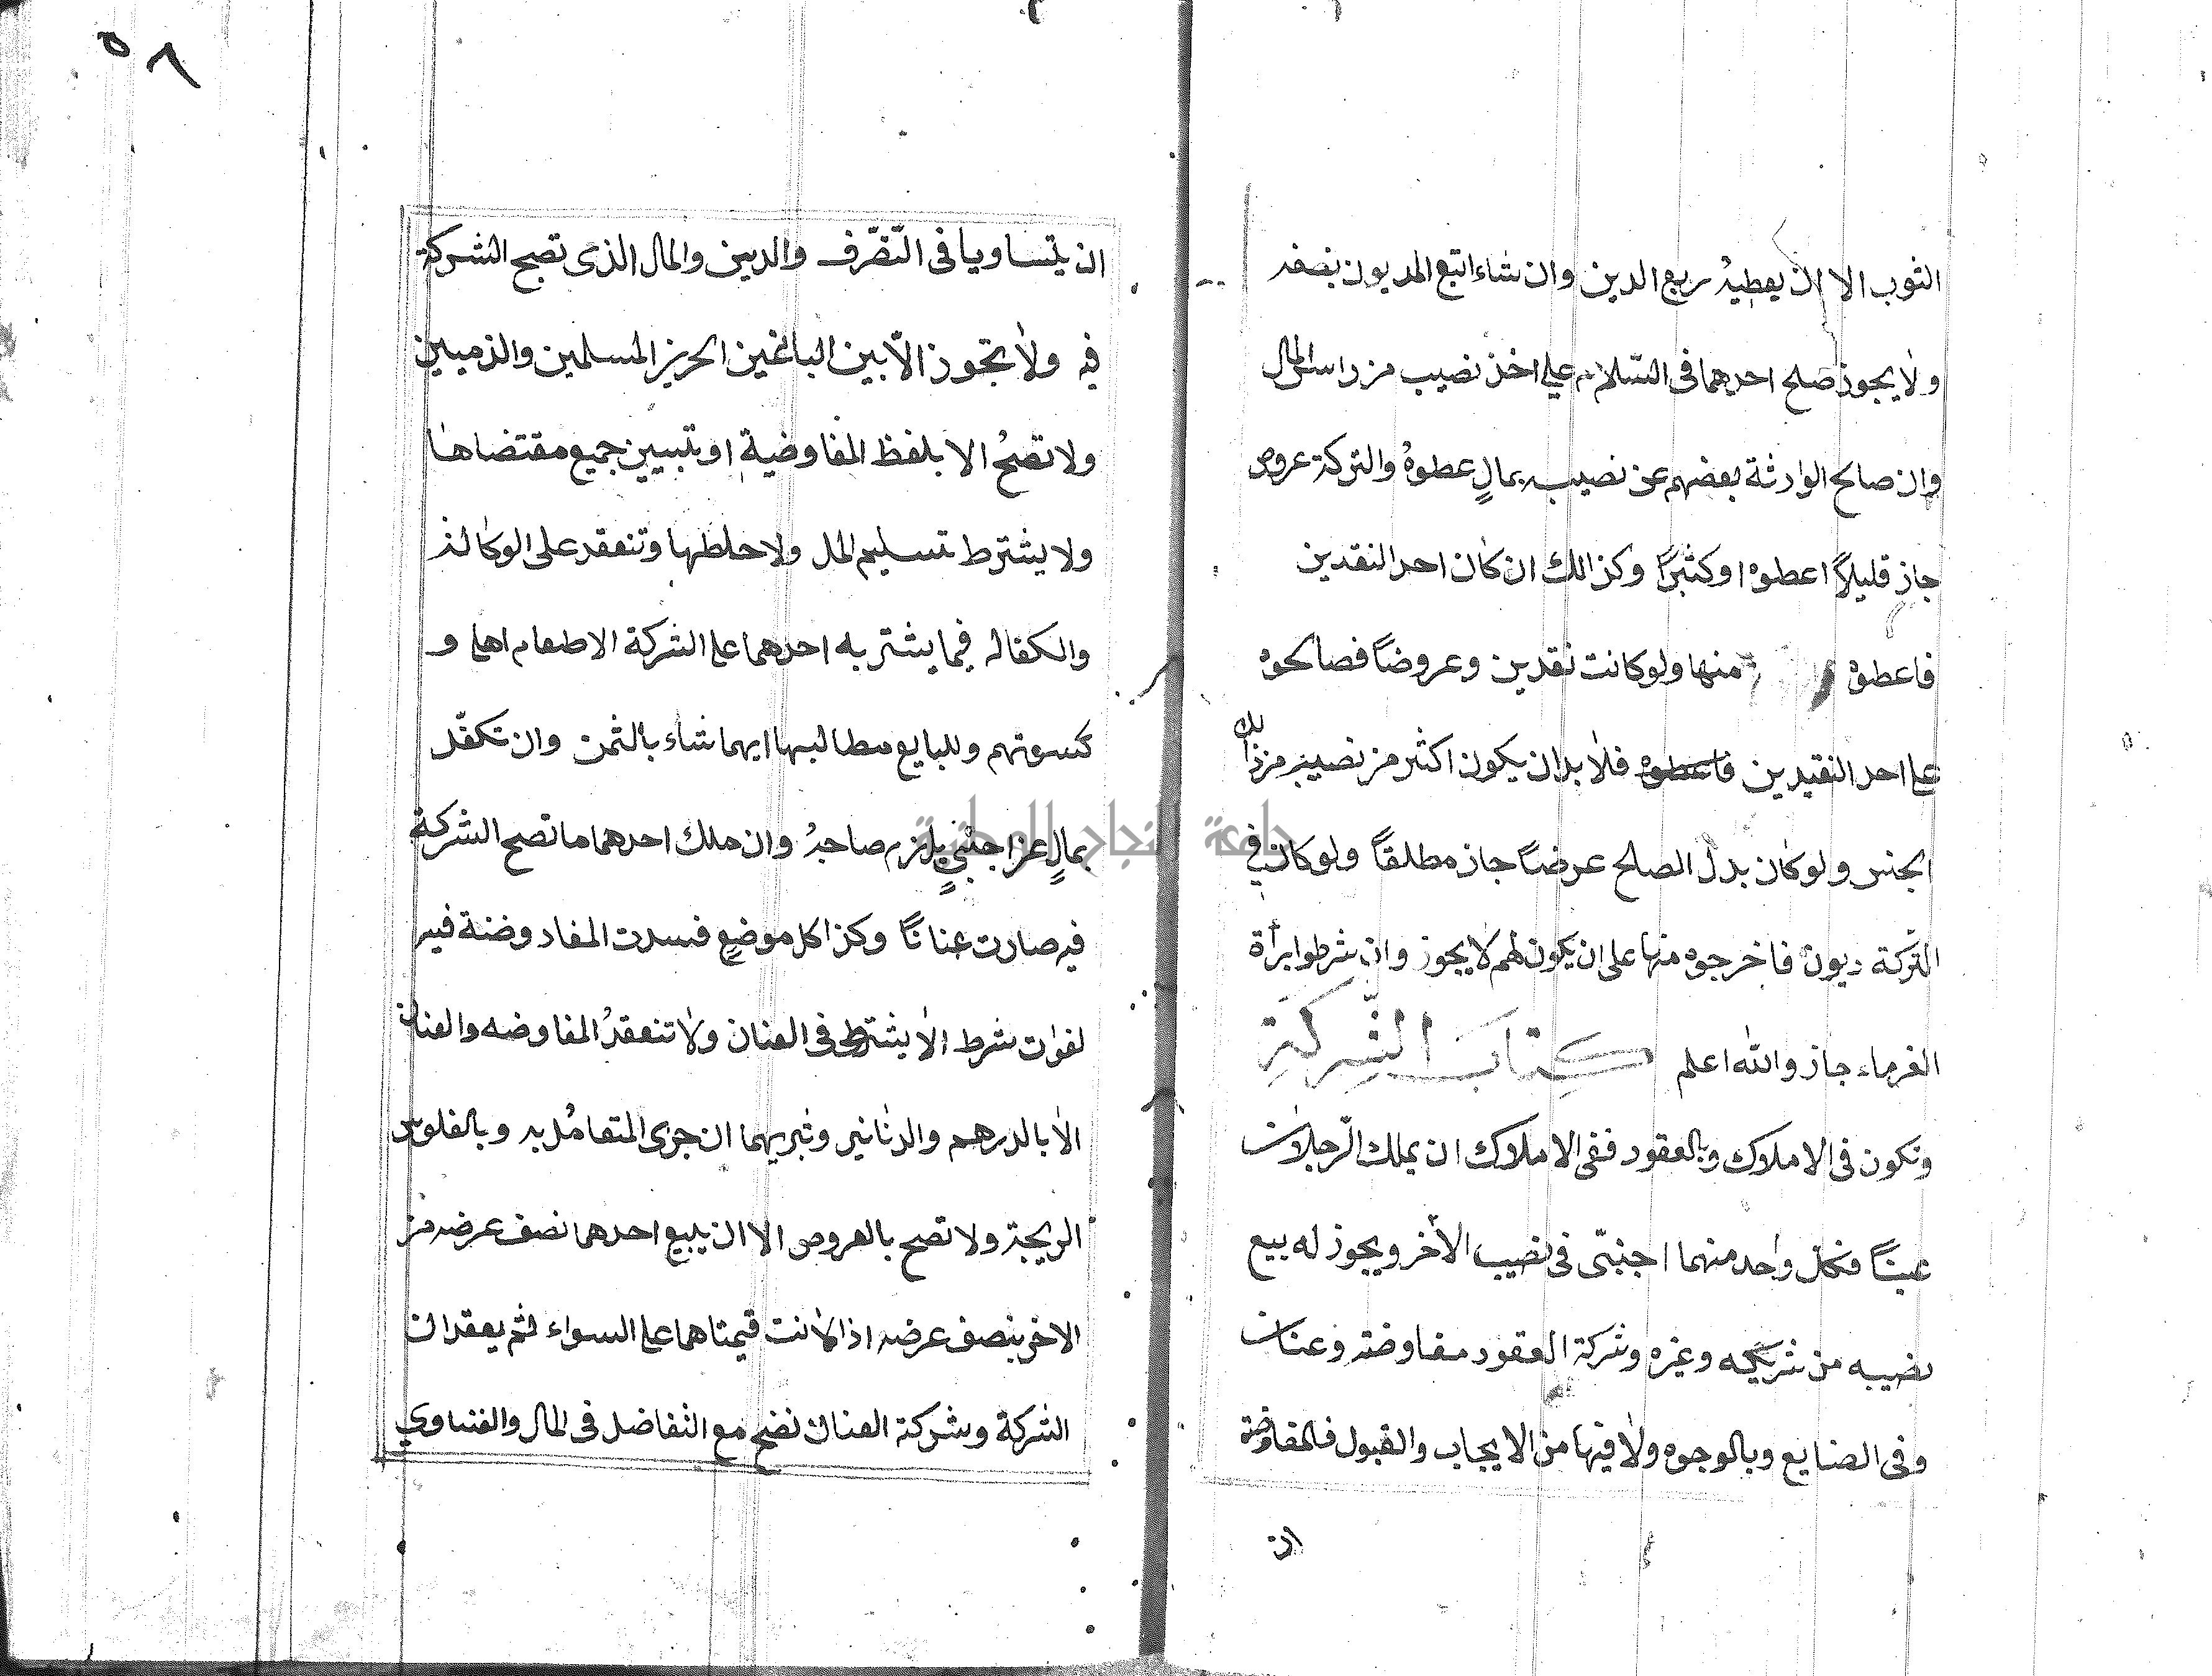 الثوب الا ان يعطيه ربع الدين وان شاء اتبع المديون بنصفه
ولا يجوز صلح احدهما فى السلام على اخذ نصيب من راس المال
وان صالح الوارثة بعضهم عن نصيبه بمالٍ عطوهُ والتركة عروض
جاز قليلاً اعطوه او كثيرًا وكذالك ان كان احد النقدين
فاعطوه منها ولو كانت نقدين وعروضًا فصالحوه
على احد النقيدين فاعطوه فلا بد ان يكون اكثر من نصيبه من ذالك
الجنس ولو كان بدل الصلح عرضًا جاز مطلقًا ولو كان في
التّركة ديون فاخرجوه منها على ان يكون لهم لا يجوز وان شرطوا براة
الغرماء جاز والله اعلم كِتَابَ الشِّركَةِ
وتكون فى الاملاك وبالعقود ففى الاملاك ان يملك الرّجلان
عينًا فكل واحد منهما اجنبىّ فى نصيب الأخر ويجوز له بيع
نصيبه من شريكه وغره وشركة العقود مفاوضة وعنان
وفى الصنايع وبالوجوه ولا فيها من الايجاب والقبول فالمفاوضة
ان
٥٨
ان يتساويا فى التّصّرف والدين والمال الذى تصح الشركة
فيه ولا تجوز الّا بين البالغين الحرين المسلمين والذميين
ولا تصحُ الا بلفظ المفاوضية او تبيين جميع مقتضاها
ولا يشترط تسليم المال ولا خلطها وتنعقد على الوكالة
والكفاله فيما يشتر به احدهما على الشركة الا طعام اهله و
كسوتهم وللبايع مطالبها ايهما شاء بالثمن وان تكفّل
بمالٍ عن اجنبيٍ يلزم صاحبهُ وان ملك احدهما ما تصح الشركة
فيه صارت عنانًا وكذا كل موضعٍ فسدت المفادوضنة فيه
لفوات شرط الا يشترط فى العنان ولا تنعقدُ المفاوضه والعنان
الا بالدرهم والدنانير وتبريهما ان جرى المتعامُل به وبالفلوس
الريجة ولا تصح بالعروض الا ان يبيع احدهما نصف عرضه من
الاخر بنصف عرضه اذا كانت قيمتاهما على السواء ثم يعقدان
الشركة وشركة العنان تصح مع التفاضل فى المال والتساوي
جامعة النجاح الوطنية